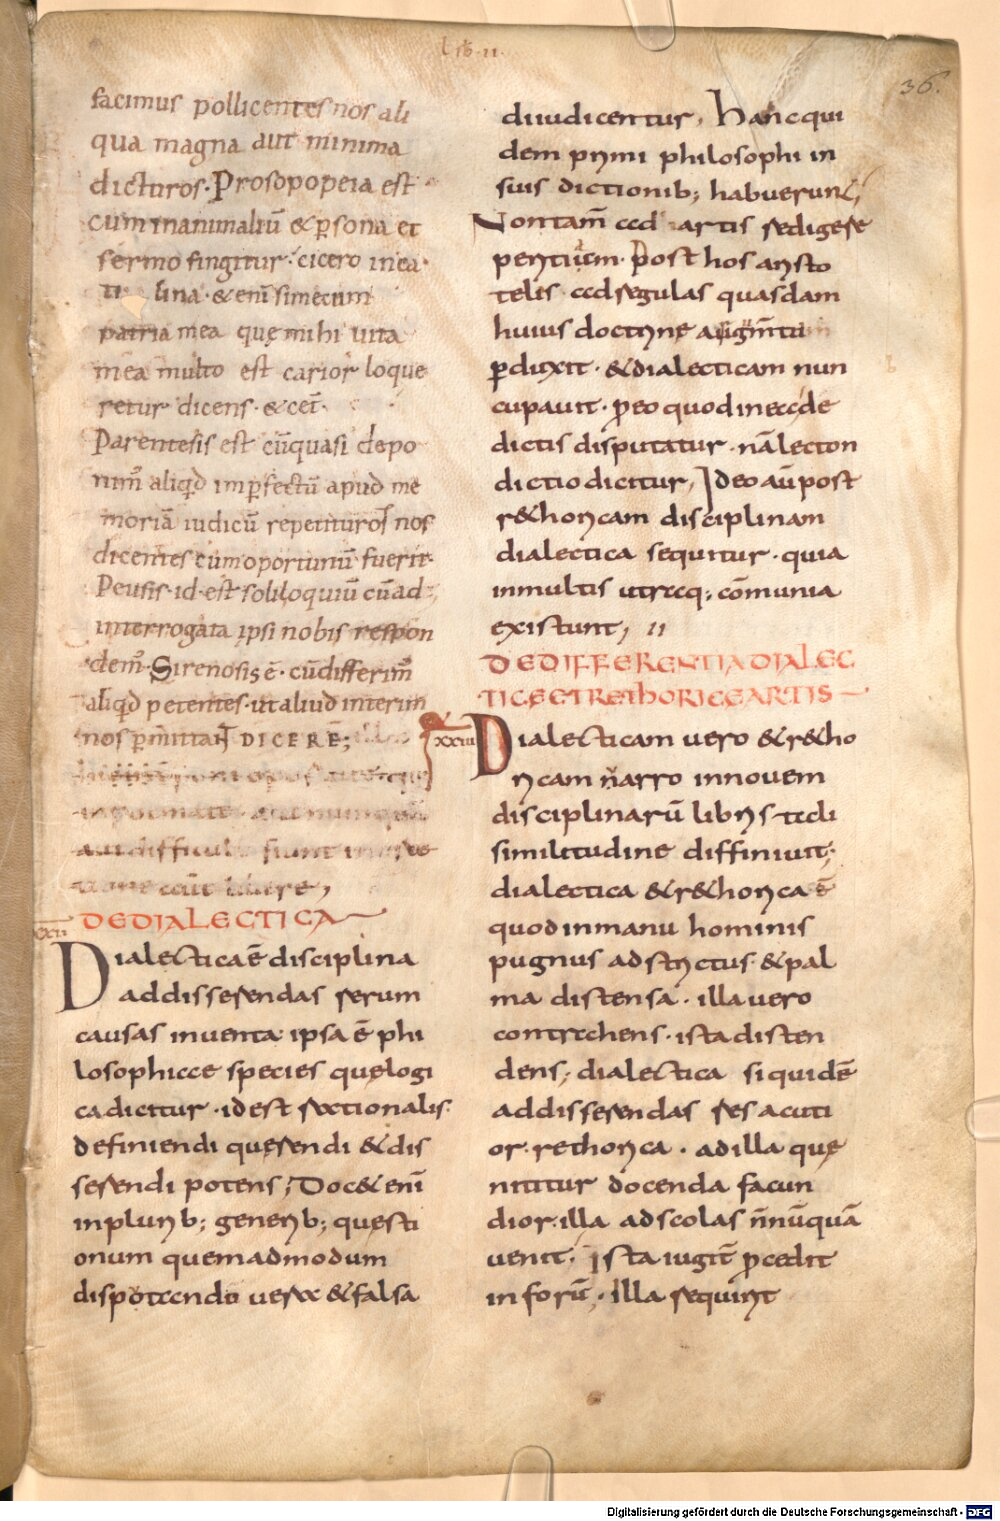 Lib·II·
36.
facimus pollicentes nos ali
qua magna aut minima
dicturos· Prosopopeia est
cum inanimaliū & p̱sona et
sermo fingitur· cicero in ca
ti lina· & enī si mecum
patria mea quę mihi uita
mea multo est carior loque
retur dicens· & cet̄·
Parentesis est cū quasi depo
nim̄ aliq̇d imp̱fectū apud me
moriā iudicū repetituros nos
dicentes cum oportunū fuerit·
Peusis· id· est soliloquiū cū ad
interrogata ipsi nobis respon
dem̄· Sirenosis ē· cū differim̄
aliq̇d petentes· ut aliud interim
nos p̱mittat DICERE;
aut difficul fiunt
libere,
XXII
DE DIALECTICA
Dialectica ē disciplina
ad disserendas rerum
causas inuenta· ipsa ē phi
losophicae species quę logi
ca dicitur· id est rationalis·
definiendi querendi & dis
serendi potens; Doc& enī
in plurib; generib; quęsti
onum quemadmodum
disputando uera & falsa
diiudicentur, Hanc qui
dem primi philosophi in
suis dictionib; habuerunt,
Non tam̄ ad artis redigere
peritiam· Post hos aristo
telis ad regulas quasdam
huius doctrinę argum̄ta
p̱duxit· & dialecticam nun
cupauit· p̱ eo quod in ea de
dictis disputatur· nā lecton
dictio dicitur, Ideo aū post
r&horicam disciplinam
dialectica sequitur· quia
in multis utraq; cōmunia
existunt, II
DE DIFFERENTIA DIALEC
TICĘ ET RETHORICĘ ARTIS
XXIII
Dialecticam uero & r&ho
ricam uarro in nouem
disciplinarū libris tali
similitudine diffiniuit;
dialectica & r&horica ē
quod in manu hominis
pugnus adstrictus· & pal
ma distensa· illa uero
contrahens· ista disten
dens; dialectica siquidē
ad disserendas res acuti
or· rethorica· ad illa quę
nititur docenda facun
dior· illa ad scolas n̄nūquā
uenit· ista iugit̄ p̱cedit
in forū· illa requirit
Digitalisierung gefördert durch die Deutsche Forschungsgemeinschaft - DFG